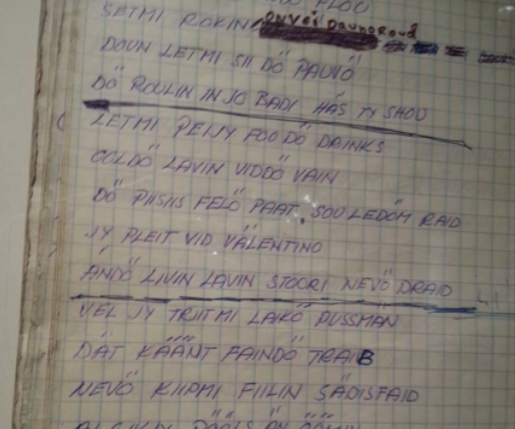 FLOU
SETMI ROKIN ONVEI DAUNOROUD
DOUN LETMI SII DÖ PAUVÖ
DÖ ROULIN IN JO BADI HÄS TY SHOU
LETMI PEIJY FOO DÖ DAINKS
COLDÖ LAVIN VIDDÖ VAIN
DÖ PIISIIS FELÖ PAAT. SOU LEDÖM RAID
JY PLEIT VID VÄLENTINO
ÄNDÖ LIVIN LAVIN STOORI NEVÖ DRAID
VEL JY TRIITMI LAIKÖ PUSSMÄN
DÄT KÄÄNT FAINDÖ TRAIB
NEVÖ KIIPMI FIILIN SÄDISFAID